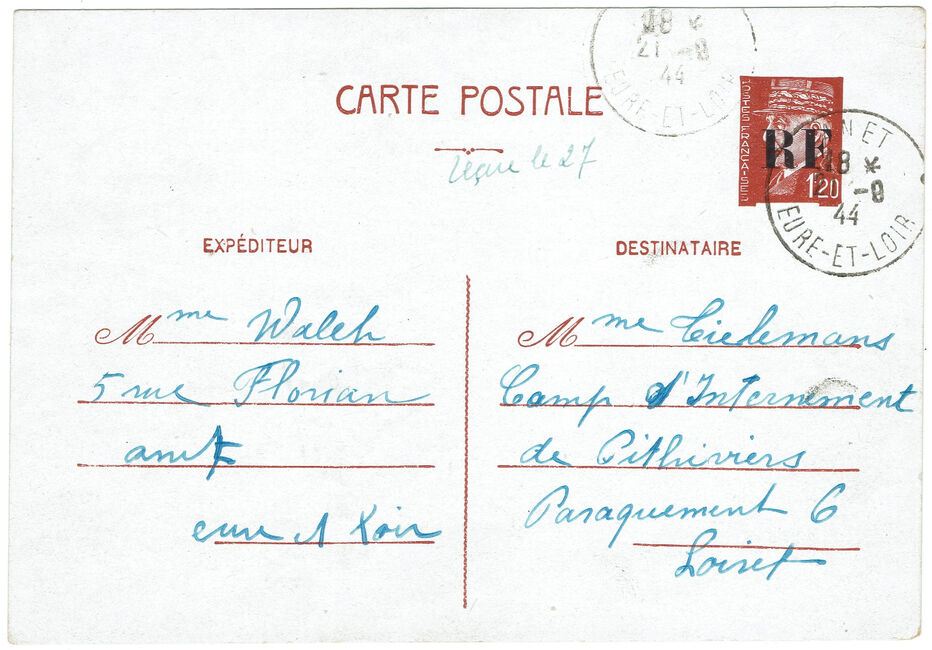 18 *
21 -8
44
EURE-ET-LOIR
CARTE POSTALE
reçue le 27
POSTES FRANÇAISES
RF
1,20
ANET
18 *
-8
44
EURE-ET-LOIR
EXPÉDITEUR
DESTINATAIRE
Mme Walch
5 rue Florian
anet
eure et Loir
Mme Tiedemans
Camp d'Internement
de Pithiviers
Baraquement 6
Loiret